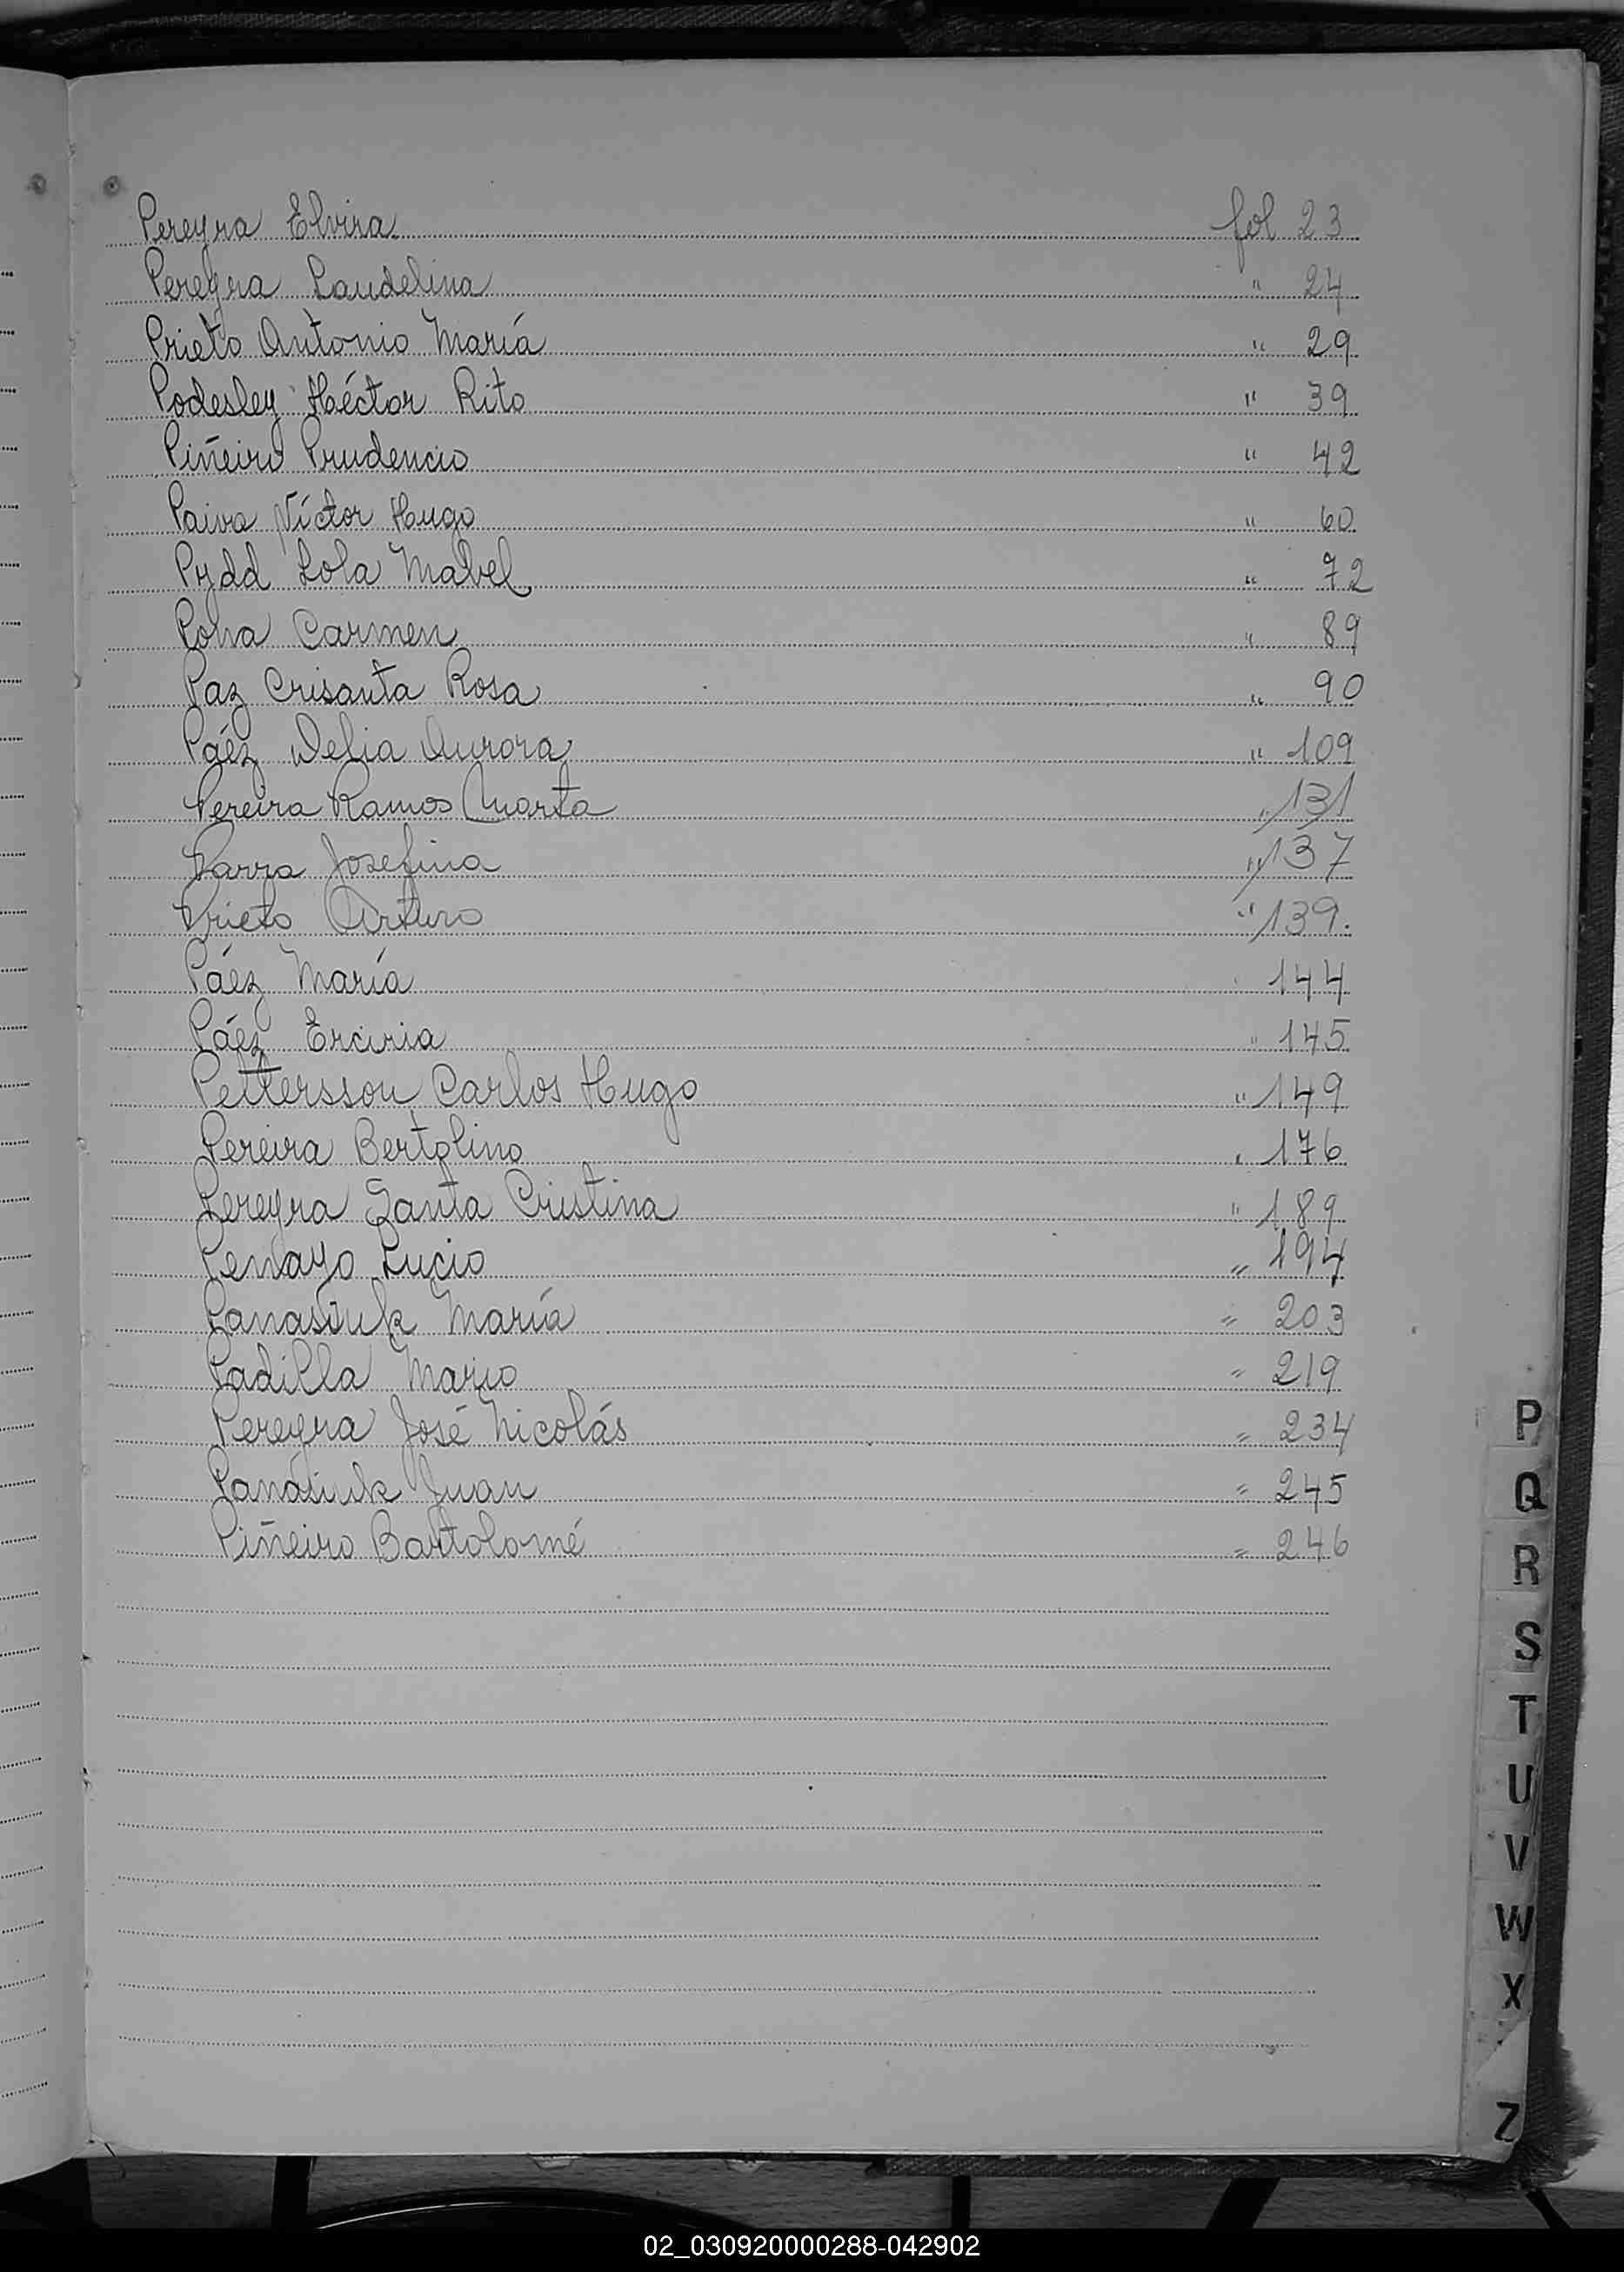 Pereyra Elvira fol 23
Pereyra Laudelina " 24
Prieto Antonio María " 29
Podesley Héctor Rito " 39
Piñeiro Prudencio " 42
Paiva Víctor Hugo " 60
Pydd Lola Mabel " 72
Carmen " 89
Paz Crisanta Rosa " 90
Páez Delia Aurora " 109
Pereira Ramos Marta " 131
Parra Josefina " 137
Prieto Arturo " 139.
Páez María 144
Páez Erciria " 145
Pettersson Carlos Hugo " 149
Pereira Bertolino " 176
Pereyra Santa Cristina " 189
Penayo Lucio " 194
Panasiuk María " 203
Padilla Mario " 219
Pereyra José Nicolás " 234
Panasiuk Juan " 245
Piñeiro Bartolomé " 246
P
Q
R
S
T
U
V
W
X
Z
02_030920000288-042902